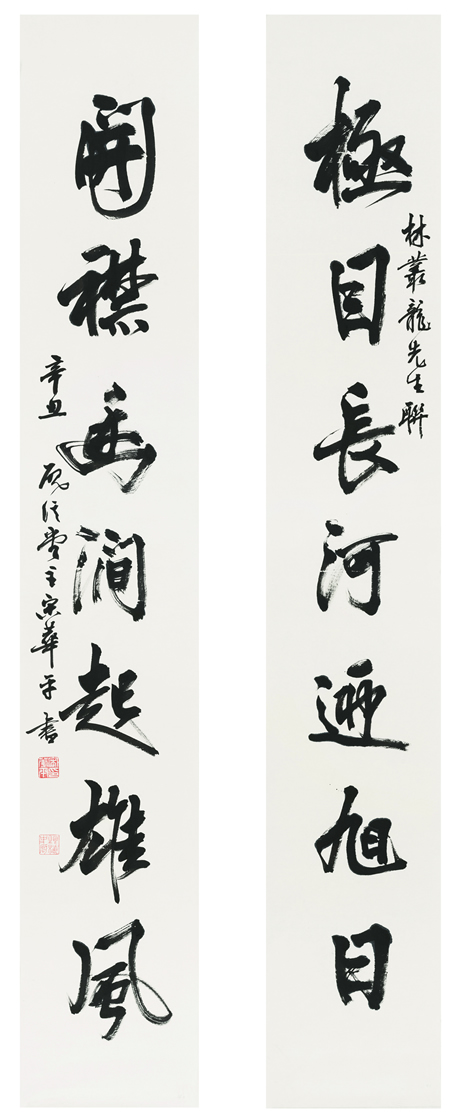 極目長河迎旭日
林叢龍先生聯
開襟幽澗起雄風
辛丑 堂主宋華平書